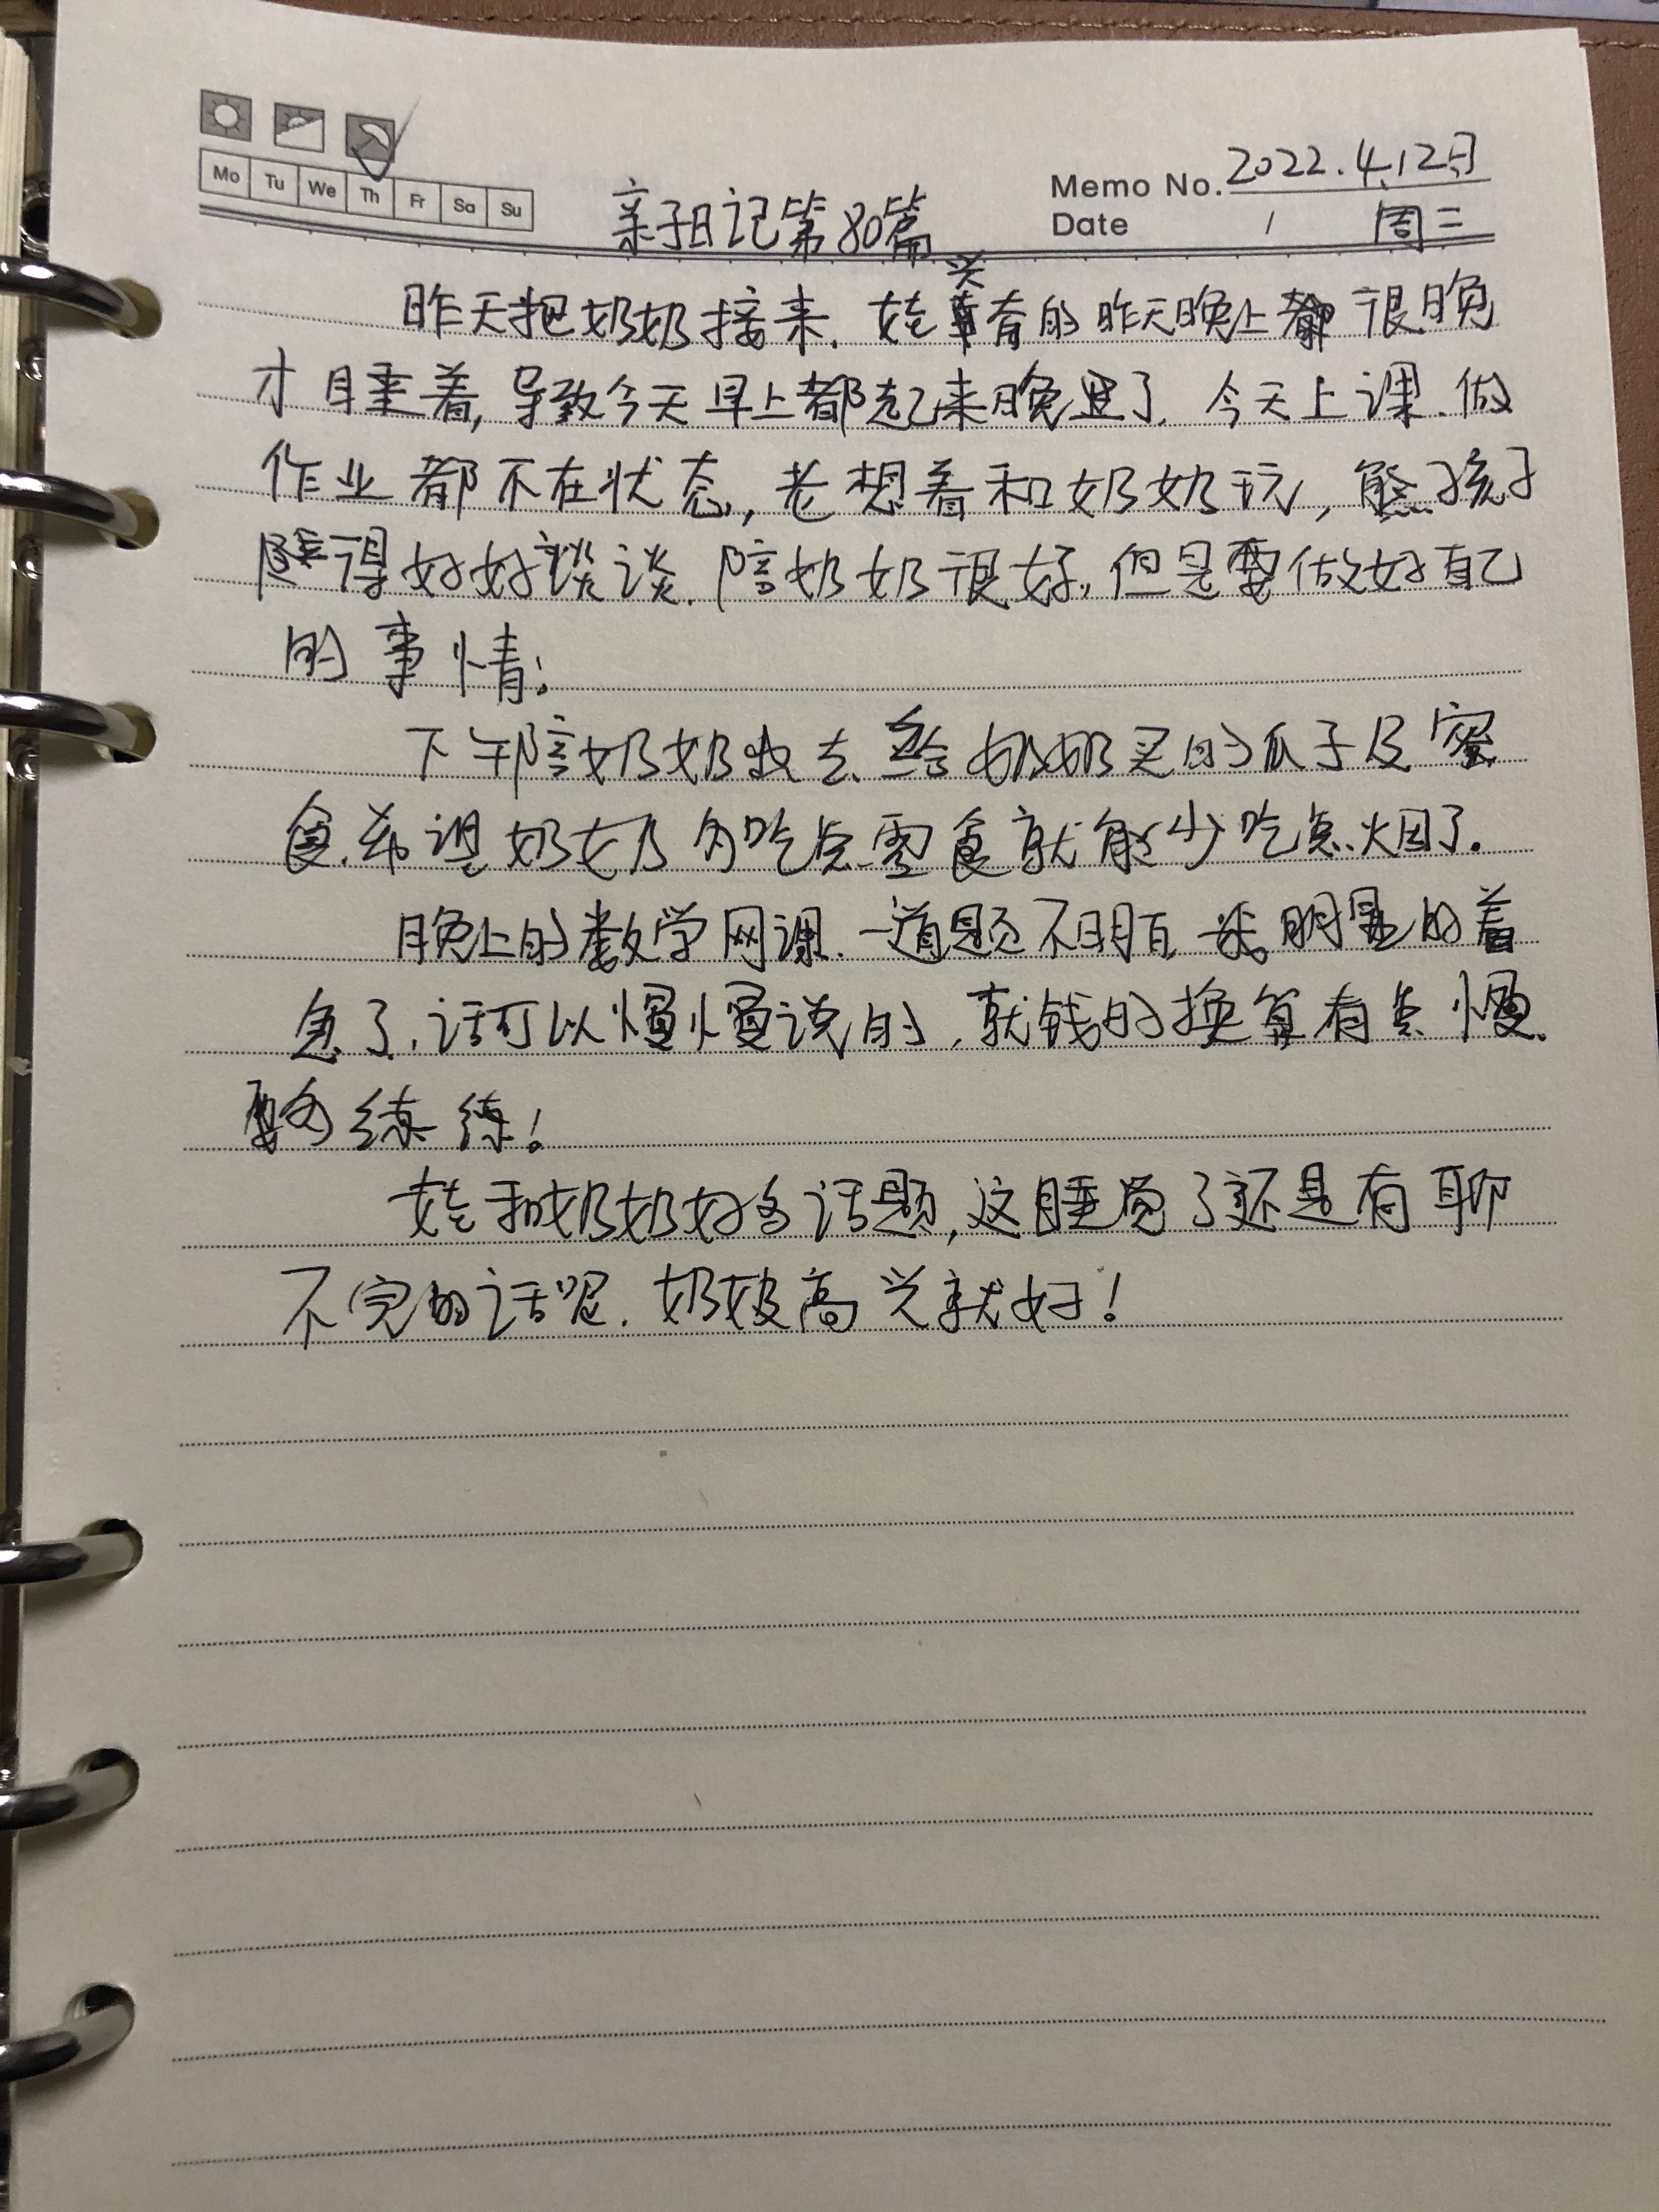 Mo Tu We Th Fr Sa Su
Memo No. 2022.4.12日
Date 周二
亲子日记第80篇
昨天把奶奶接来.娃兴奋的昨天晚上都很晚
才睡着,导致今天早上都起来晚了.今天上课.做
作业都不在状态,老想着和奶奶玩,熊孩子
得好好谈谈.陪奶奶很好,但是要做好自己
的事情;
下午陪奶奶去.给奶奶买的瓜子及零
食.希望奶奶多吃点零食就能少吃点烟了.
晚上的数学网课.一道题不明白 明显的着
急了.话可以慢慢说的,就钱的换算有点慢.
要多练练!
娃和奶奶好多话题,这睡觉了还是有聊
不完的话呢.奶奶高兴就好!